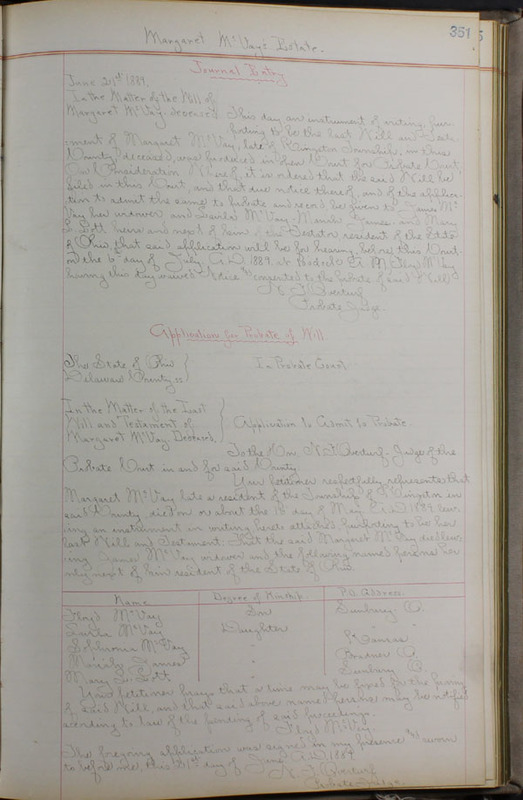 351
Margaret McVay's Estate.
Journal Entry
June 21st 1889.
In the Matter of the Will of
Margaret McVay deceased This day an instrument of writing pur-
porting to be the last Will and Testa-
ment of Margaret McVay, late of Kingston Township, in this
County, deceased, was produced in open Court for Probate Court
On Consideration Whereof, it is ordered that the said Will be
filed in this Court, and that due notice thereof, and of the applica-
tion to admit the same to probate and record be given to James Mc
Vay her widower and McVay James and Mary
heirs and next of kin of the Testator resident of the State
of Ohio, that said application will be for hearing before this Court
on the 6th day of July A.D. 1889, at o'clock Floyd McVay
having this day waived notice & consented to the probate of said Will
Probate Judge
Application for Probate of Will
The State of Ohio
Delaware County ss In Probate Court
In the Matter of the Last
Will and Testament of Application to Admit to Probate
Margaret McVay Deceased.
To the Hon. Judge of the
Probate Court in and for said County
Your petitioner respectfully represents that
Margaret McVay late a resident of the Township of Kingston in
said County died on or about the 18 day of May A.D. 1889 leav-
ing an instrument in writing hereto attached purporting to be her
last Will and Testament. That the said Margaret McVay died leav-
ing James McVay widower and the following named persons her
only next of kin resident of the State of Ohio
Name Degree of Kinship P.O. Address
Floyd McVay Son Sunbury O.
McVay Daughter "
McVay " Kansas
James " Bradner O.
Mary " Sunbury O.
Your petitioner prays that a time may be fixed for the proving
of said Will, and that said above named persons may be notified
according to law of the pending of said proceedings.
Floyd McVay
The foregoing application was signed in my presence & sworn
to before me, this 21st day of June A.D. 1889
Probate Judge